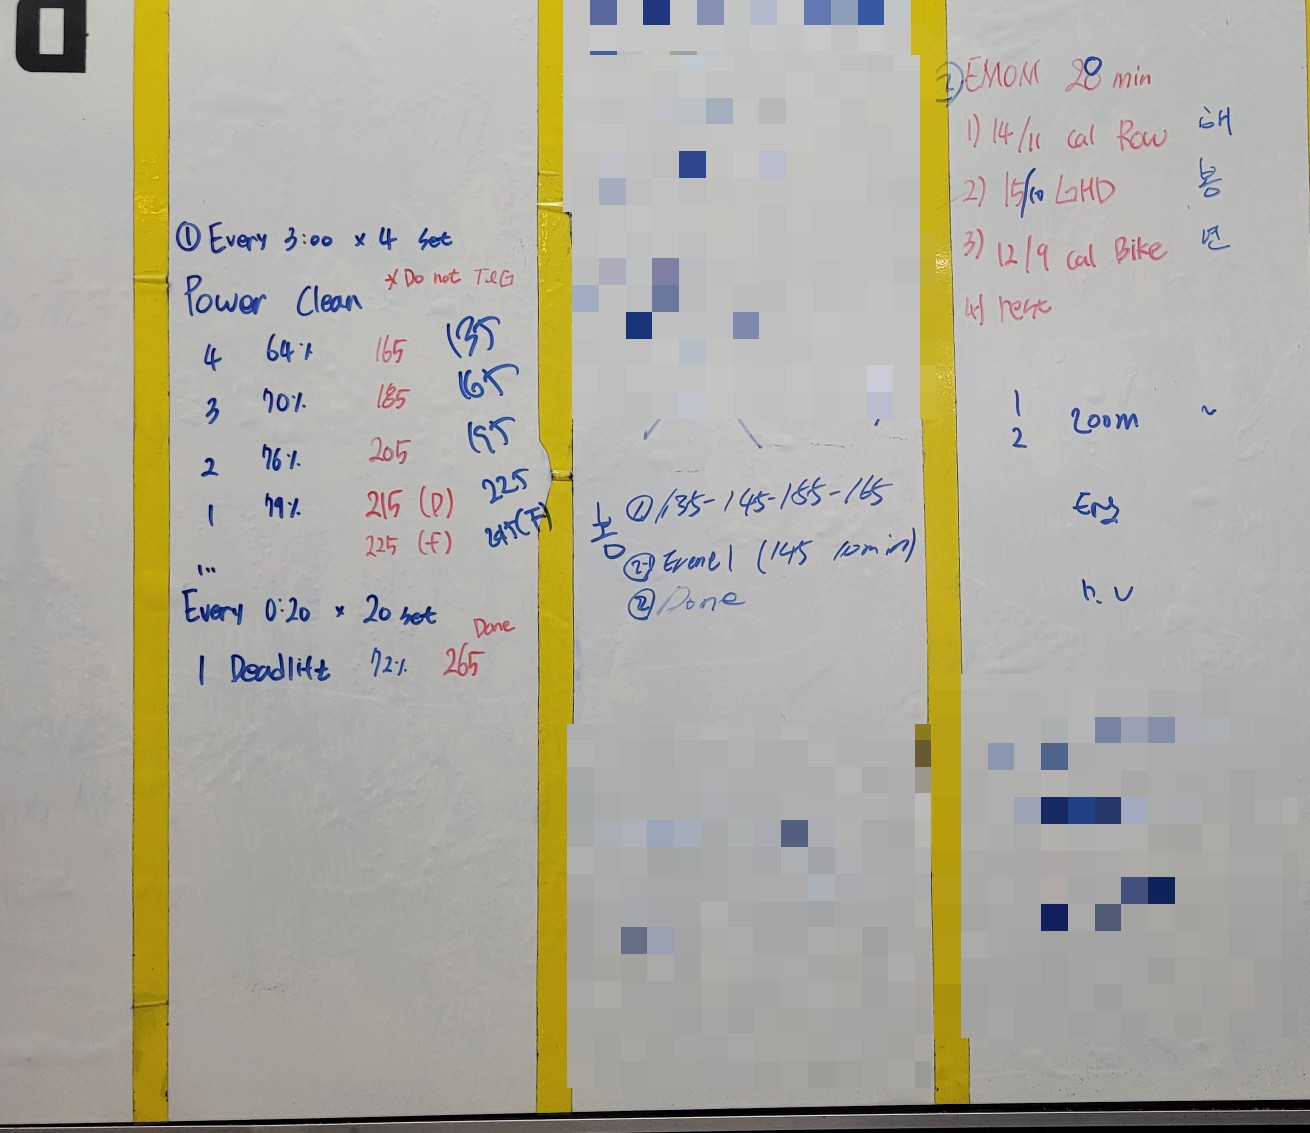 ① Every 3:00 x 4 set
Power Clean * Do not T&G
4 64% 165 135
3 70% 185 165
2 76% 205 195
1 79% 215 (P) 225
225 (f) 245(F)
...
Every 0:20 x 20 set
Done
1 Deadlift 72% 265
① 135-145-155-165
② (145 10min)
② Done
② EMOM 28 min
1) 14/11 cal Row 해
2) 15/10 GHD 봉
3) 12/9 cal Bike 면
4) rest
1
2 200m ~